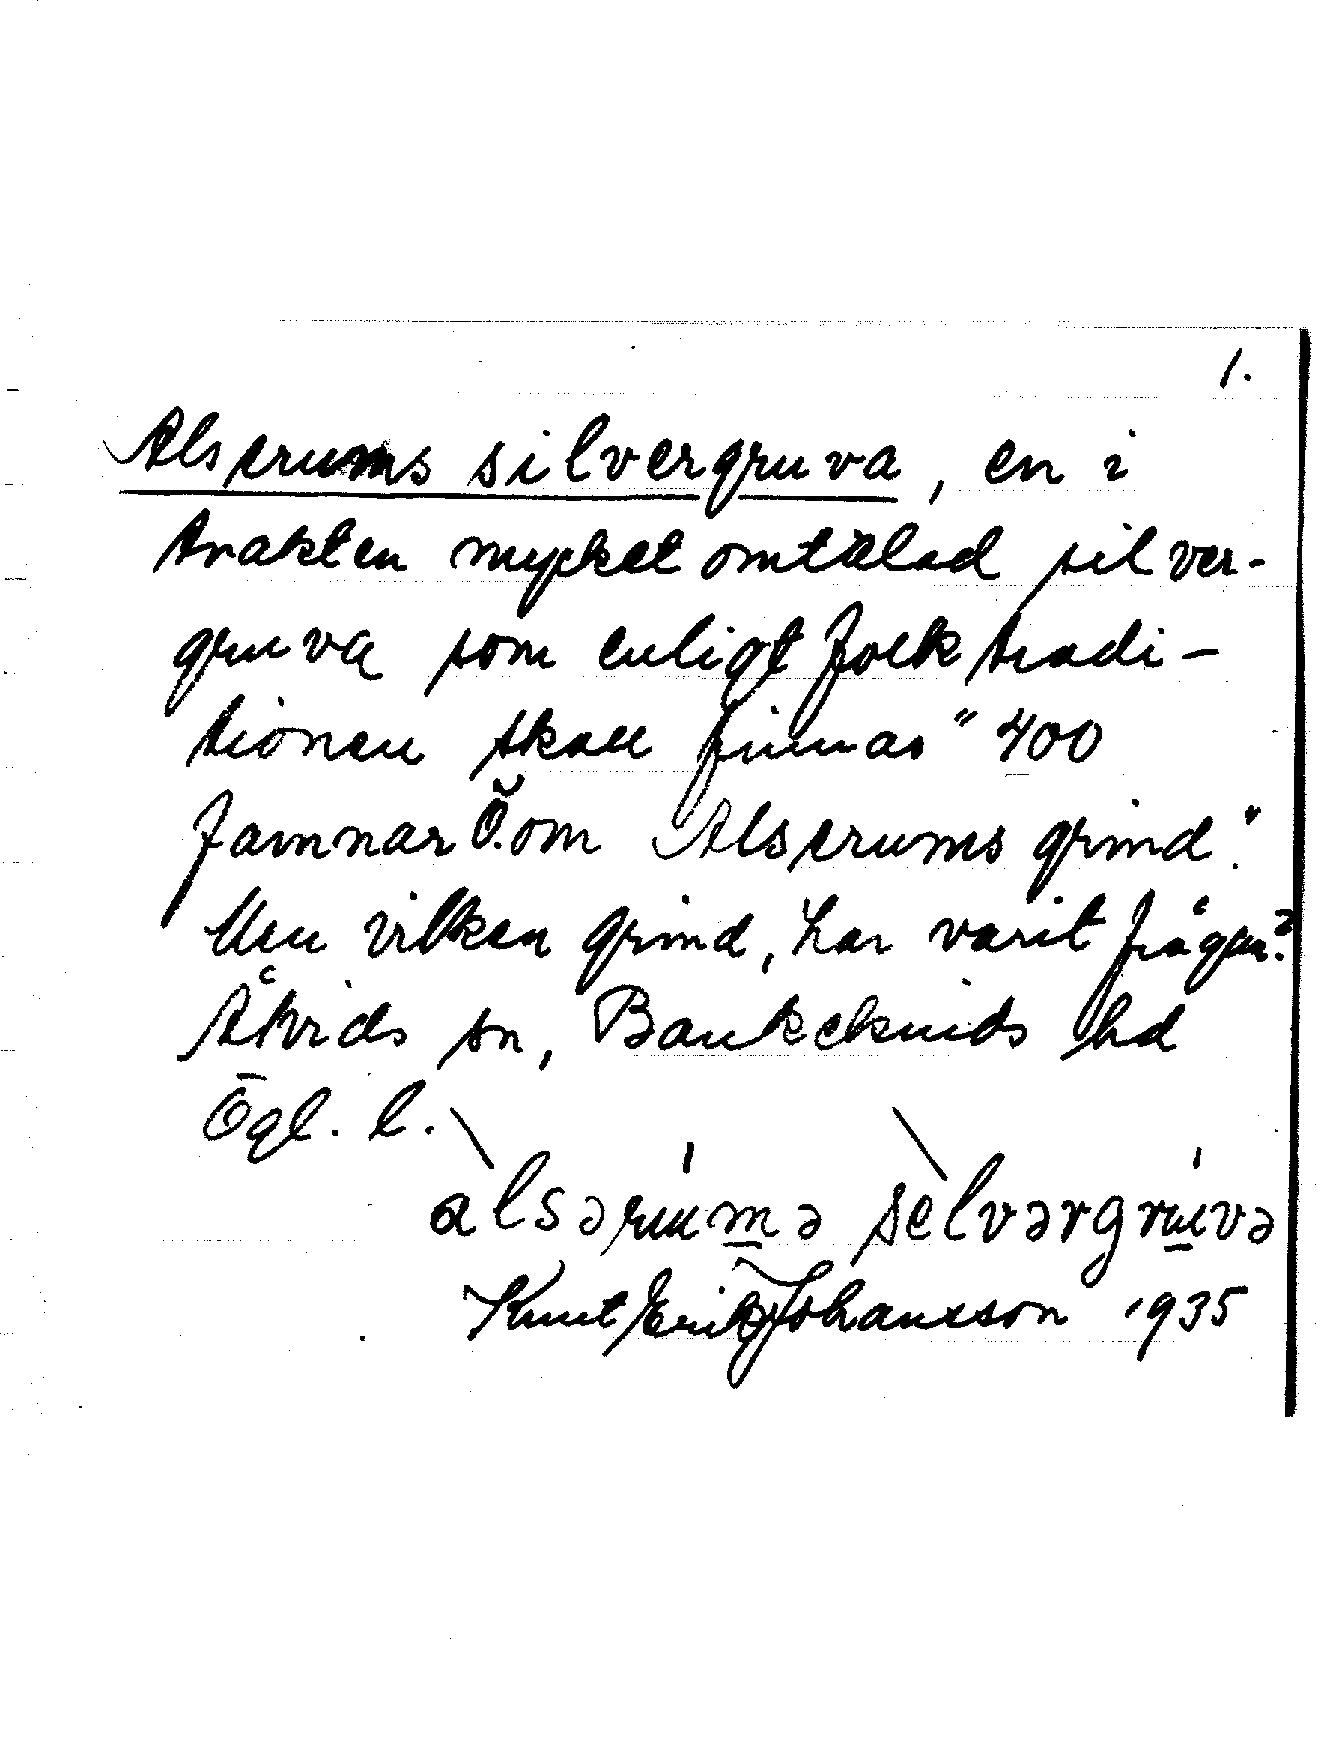 1.
Alserums silvergruva, en i
trakten mycket omtalad silver-
gruva som enligt folktradi-
tionen skall finnas "400
famnar Ö. om Alserums grind".
Men vilken grind, har varit frågan?
Åtvids sn, Bankekinds hd
Ögl. l.
alsəruma selvərgruvə
Knut Erik Johansson 1935